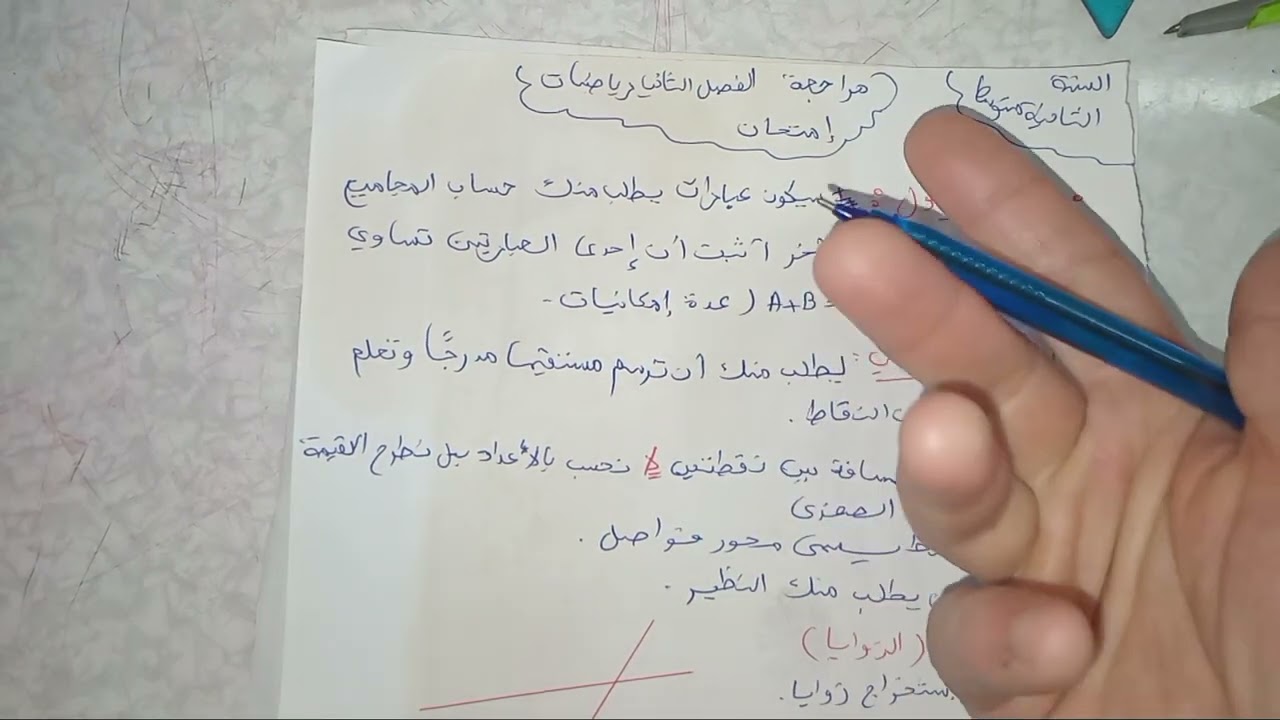 السنة
الثانية متوسط
مراجعة الفصل الثاني رياضيات
إمتحان
سيكون عبارات يطلب منك حساب المجاميع
أثبت أن إحدى العبارتين تساوي
A+B ( عدة إمكانيات -
ليطلب منك أن ترسم مستقيما مدرجًا وتعلم
النقاط .
بين نقطتين لا نحسب بالأعداد بل نطرح القيمة
الصغرى
يسمى محور فواصل .
يطلب منك النظير .
( الزوايا )
إستخراج زوايا .